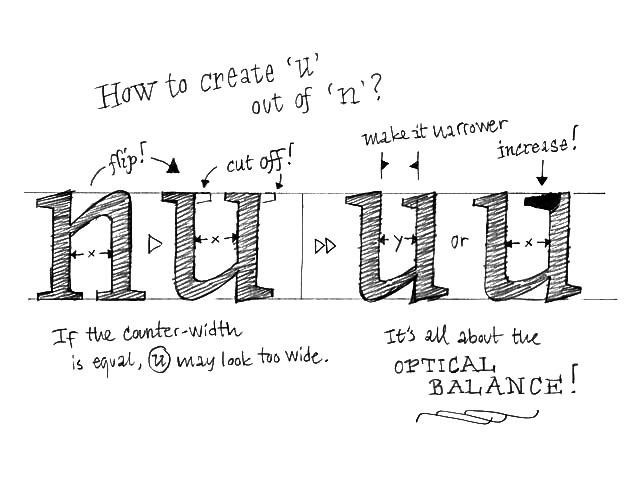 How to create 'u'
out of 'n'?
flip!
cut off!
make it narrower
increase!
n u u or u
x x y x
If the counter-width
is equal, u may look too wide.
It's all about the
OPTICAL
BALANCE!